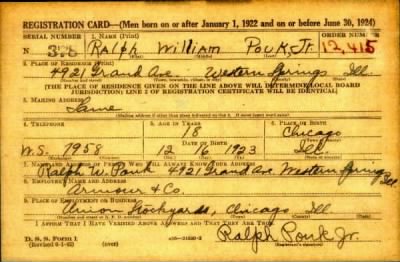 REGISTRATION CARD—(Men born on or after January 1, 1922 and on or before June 30, 1924)
SERIAL NUMBER 1. NAME (Print) ORDER NUMBER
N 375 Ralph William Pouk, Jr. 12,415
2. PLACE OF RESIDENCE (Print)
4921 Grand Ave. Western Springs Ill.
(THE PLACE OF RESIDENCE GIVEN ON THE LINE ABOVE WILL DETERMINE LOCAL BOARD
JURISDICTION; LINE 2 OF REGISTRATION CERTIFICATE WILL BE IDENTICAL)
3. MAILING ADDRESS
Same
4. TELEPHONE 5. AGE IN YEARS 6. PLACE OF BIRTH
18 Chicago
DATE OF BIRTH
W.S. 7958 12 16 1923 Ill.
7. NAME AND ADDRESS OF PERSON WHO WILL ALWAYS KNOW YOUR ADDRESS
Ralph W. Pouk 4921 Grand Ave. Western Springs Ill.
8. EMPLOYER'S NAME AND ADDRESS
Armour & Co.
9. PLACE OF EMPLOYMENT OR BUSINESS
Union Stockyards, Chicago Ill
I AFFIRM THAT I HAVE VERIFIED ABOVE ANSWERS AND THAT THEY ARE TRUE.
D. S. S. Form 1
Ralph Pouk Jr.